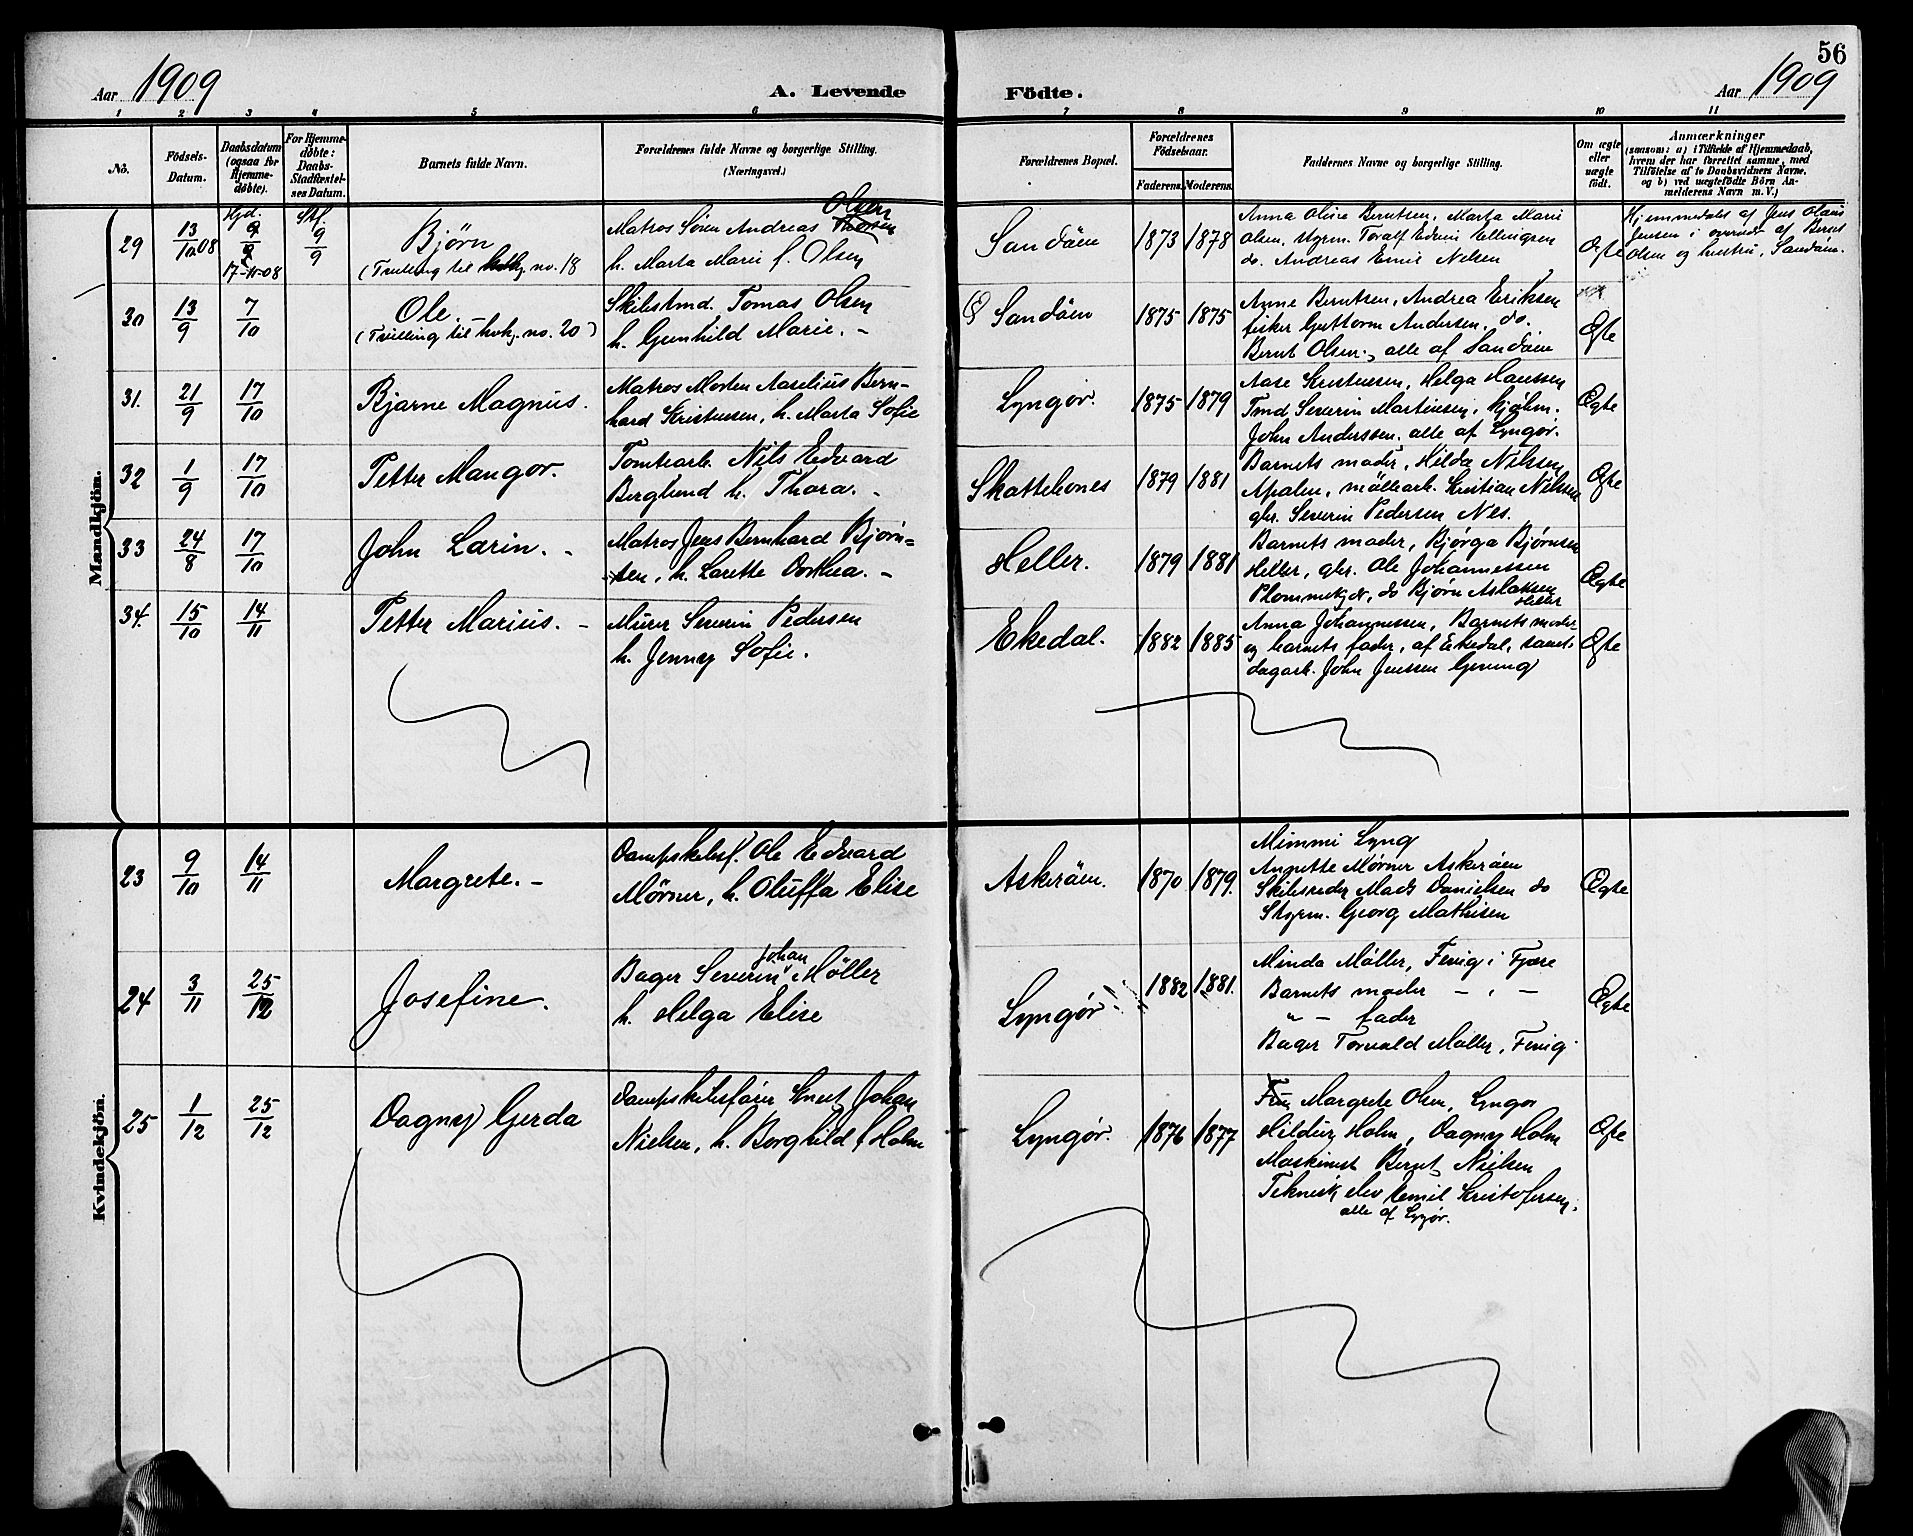 56
Aar 1909
A. Levende
Födte.
Aar 1909
1 2 3 4 5 6 7 8 9 10 11
No.
Födsels-
Datum.
Daabsdatum
(ogsaa for
Hjemme-
döbte).
For Hjemme-
döbte:
Daabs-
Stadfæstel-
ses Datum.
Barnets fulde Navn.
Forældrenes fulde Navne og borgerlige Stilling.
(Næringsvei.)
Forældrenes Bopæl.
Forældrenes
Födselsaar.
Faderens. Moderens.
Faddernes Navne og borgerlige Stilling.
Om ægte
eller
uægte
født.
Anmærkninger
(saasom: a) i Tilfælde af Hjemmedaab,
hvem der har forrettet samme, med
Tilföielse af to Daabsvidners Navne,
og b) ved uægtefödte Börn An-
melderens Navn m. V.)
Mandkjön.
29
13/10 08
Hjd.
17-11-08
Stf.
9/9
Bjørn
(Tvilling til kvkj. no. 18
Matros Søren Andreas Olsen
h. Marta Marie f. Olsen
Sandöen
1873 1878
Anna Oline Berntsen, Marta Marie
Olsen, styrm. Toralf Edvin Ellingsen
do. Andreas Emil Nelsen
Egte
Hjemmedøbt af Jens Olaus
Jensen i overvær af Bernt
Olsen og hustru, Sandöen.
30
13/9
7/10
Ole.
(Tvilling til kvkj. no. 20)
Skibstmd. Tomas Olsen
h. Gunhild Marie. -
Sandöen
1875 1875
Anne Berntsen, Andrea Eriksen
fisker Guttorm Andersen, do.
Bernt Olsen, alle af Sandöen
Egte
31.
21/9
17/10
Bjarne Magnus.
Matros Morten Aurelius Bern-
hard Kristensen, h. Marta Sofie
Lyngör.
1875 1879
Aase Kristensen, Helga Hanssen
Tmd Severin Martinsen, Kjøbm.
John Anderssen, alle af Lyngör.
Ægte
32
1/9
17/10
Petter Mangor.
Tomtearb. Nils Edvard
Berglund h. Thora. -
Skottebones
1879 1881
Barnets moder, Hilda Nilssen
Apalen, möllearb. Kristian Nilssen
gbr. Severin Pedersen Nes.
Egte
33
24/8
17/10
John Larin. -
Matros Jens Bernhard Bjørn-
sen, h. Larette Dorthea. -
Heller.
1879 1881
Barnets moder, Bjørga Bjørnsen
Heller, gbr. Ole Johannessen
Plommekjær, do Bjørn Aslaksen
Heller
Ægte
34.
15/10
14/11
Petter Marius. -
Murer Severin Pedersen
h. Jenny Sofie.
Ekedal.
1882 1885
Anna Johannessen, Barnets moder
og barnets fader, af Ekedal, samt
dagarb. John Jenssen Gjerning
Egte
Kvindekjön.
23
9/10
14/11
Margrete. -
Dampskibsf. Ole Edvard
Mørner, h. Oluffa Elise
Askeröen.
1870 1879.
Mimmi Lyng
Angrette Mørner Askeröen
Skibsreder Mads Danielsen do
Styrm. Georg Mathisen
Ægte
24
3/11
25/12
Josefine.
Johan
Bager Severin Möller
h. Helga Elise
Lyngör
1882 1881.
Minda Möller, Fevig i Fjære
Barnets moder - " -
" - fader
Bager Torvald Möller, Fevig
Ægte
25
1/12
25/12
Dagny Gerda
Dampskibsfører Knut Johan
Nielsen, h. Borghild f Holm
Lyngör.
1876 1877
Margrete Olsen, Lyngør
Hildur Holm, Dagny Holm
Maskinist Bernt Nielsen
Teknisk elev Emil Kristofersen,
alle af Lyngör.
Egte